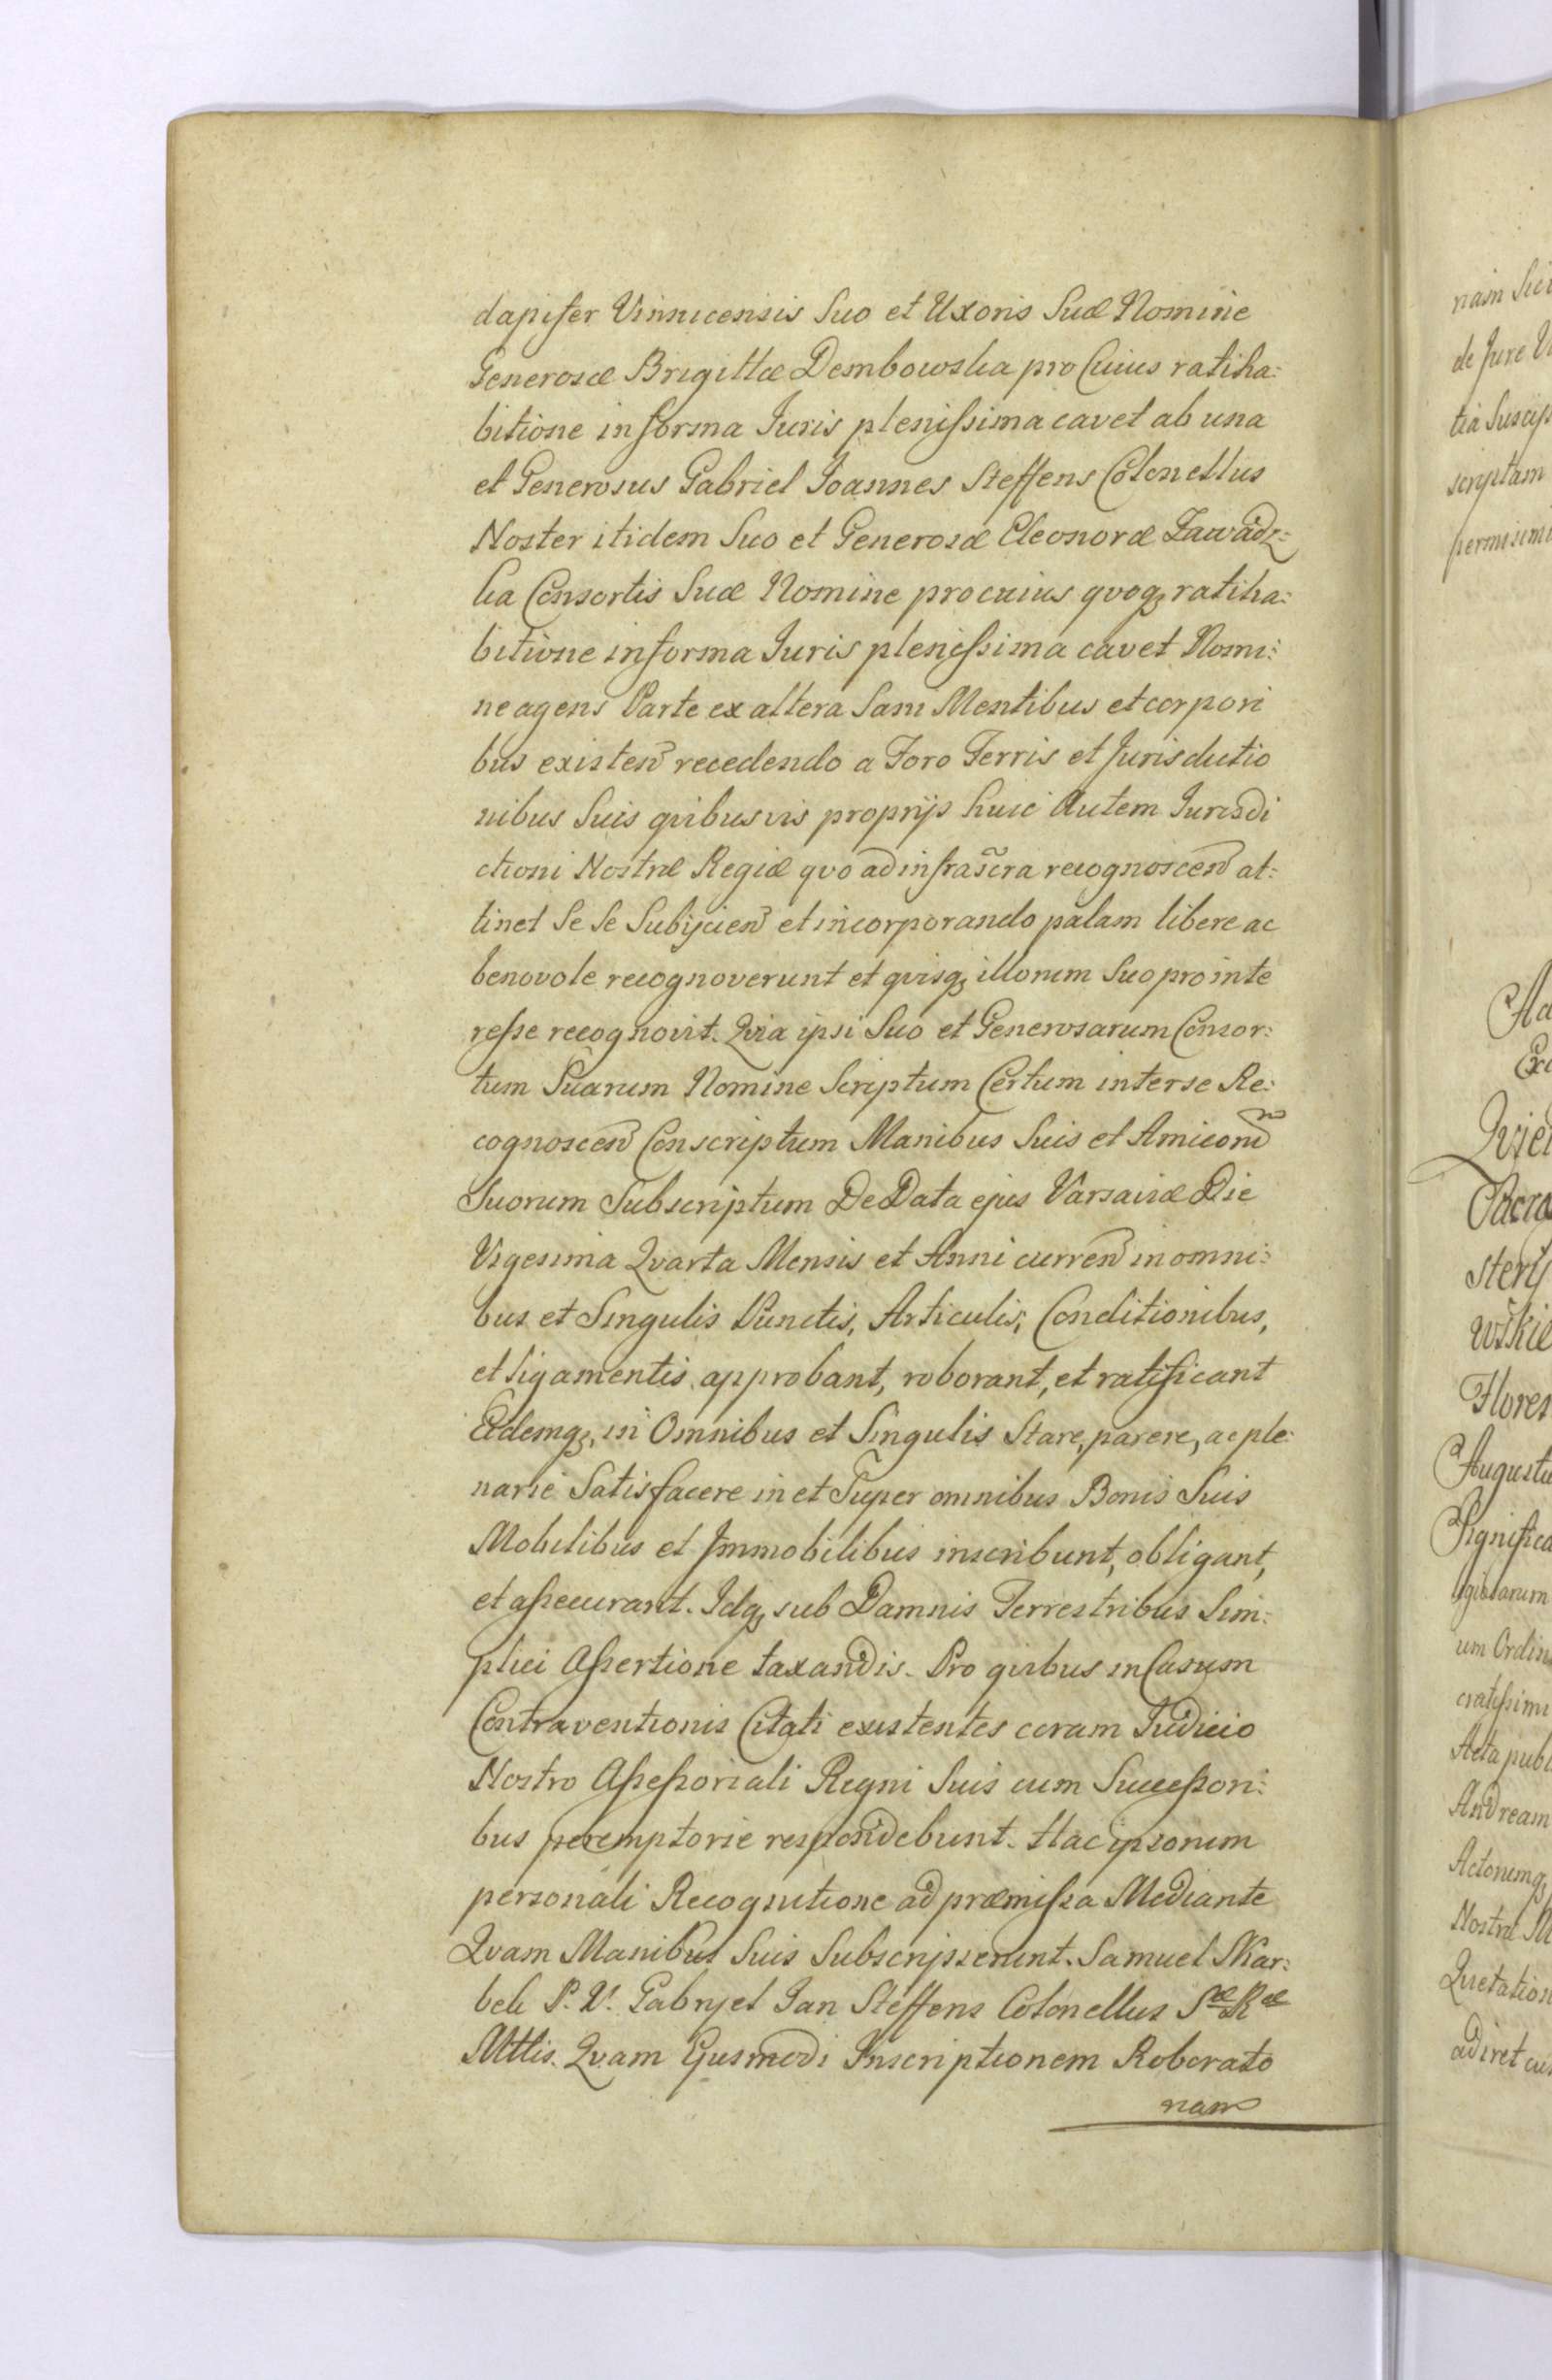 dapifer Vinnicensis Suo et Uxoris Suæ Nomine
Generosæ Brigittæ Dembowska pro Cuius ratiha:
bitione in forma Iuris plenissima cavet ab una
et Generosus Gabriel Joannes Steffens Colonellus
Noster itidem Suo et Generosæ Eleonoræ Zawadz:
ka Consortis Suæ Nomine pro cuius qvoq; ratiha:
bitione in forma Iuris plenissima cavet Nomi:
ne agens Parte ex altera Sani Mentibus et corpori
bus existen recedendo a Foro Terris et Jurisdictio
nibus Suis qvibusvis proprijs huic Autem Jurisdi
ctioni Nostræ Regiæ qvo ad infrascra recognoscen at:
tinet Se Se Subijcien et incorporando palam libere ac
benovole recognoverunt et qvisq; illorum Suo pro inte
resse recognovit. Qvia ipsi Suo et Generosarum Consor:
tum Suarum Nomine Scriptum Certum inter se Re:
cognoscen Conscriptum Manibus Suis et Amicorum
Suorum Subscriptum De Data ejus Varsaviæ Die
Vigesima Qvarta Mensis et Anni curren in omni:
bus et Singulis Punctis, Articulis, Conditionibus,
et ligamentis approbant, roborant, et ratificant
Eidemq;, in Omnibus et Singulis Stare, parere, ac ple:
narie Satisfacere in et Super omnibus Bonis Suis
Mobilibus et Immobilibus inscribunt, obligant,
et assecurant. Idq; sub Damnis Terrestribus Sim:
plici Assertione taxandis. Pro qvibus in Casum
Contraventionis Citati existentes coram Judicio
Nostro Assessoriali Regni Suis cum Successori:
bus peremptorie respondebunt. Hac ipsorum
personali Recognitione ad præmissa Mediante
Qvam Manibus Suis Subscripserunt. Samuel Skar:
bek P. W. Gabryel Jan Steffens Colonellus Sæ Ræ
Mttis. Qvam Ejusmodi Inscriptionem Roborato
nam
nam
de Jure
tia Suscep
scriptam
permisimu
Ex
Sacra
stery
wskie
Flores
Augustu
Significa
um Ordin
cratissimi
Acta publ
Andream
Actorumq;
Nostræ M
Quetation
adiret cu